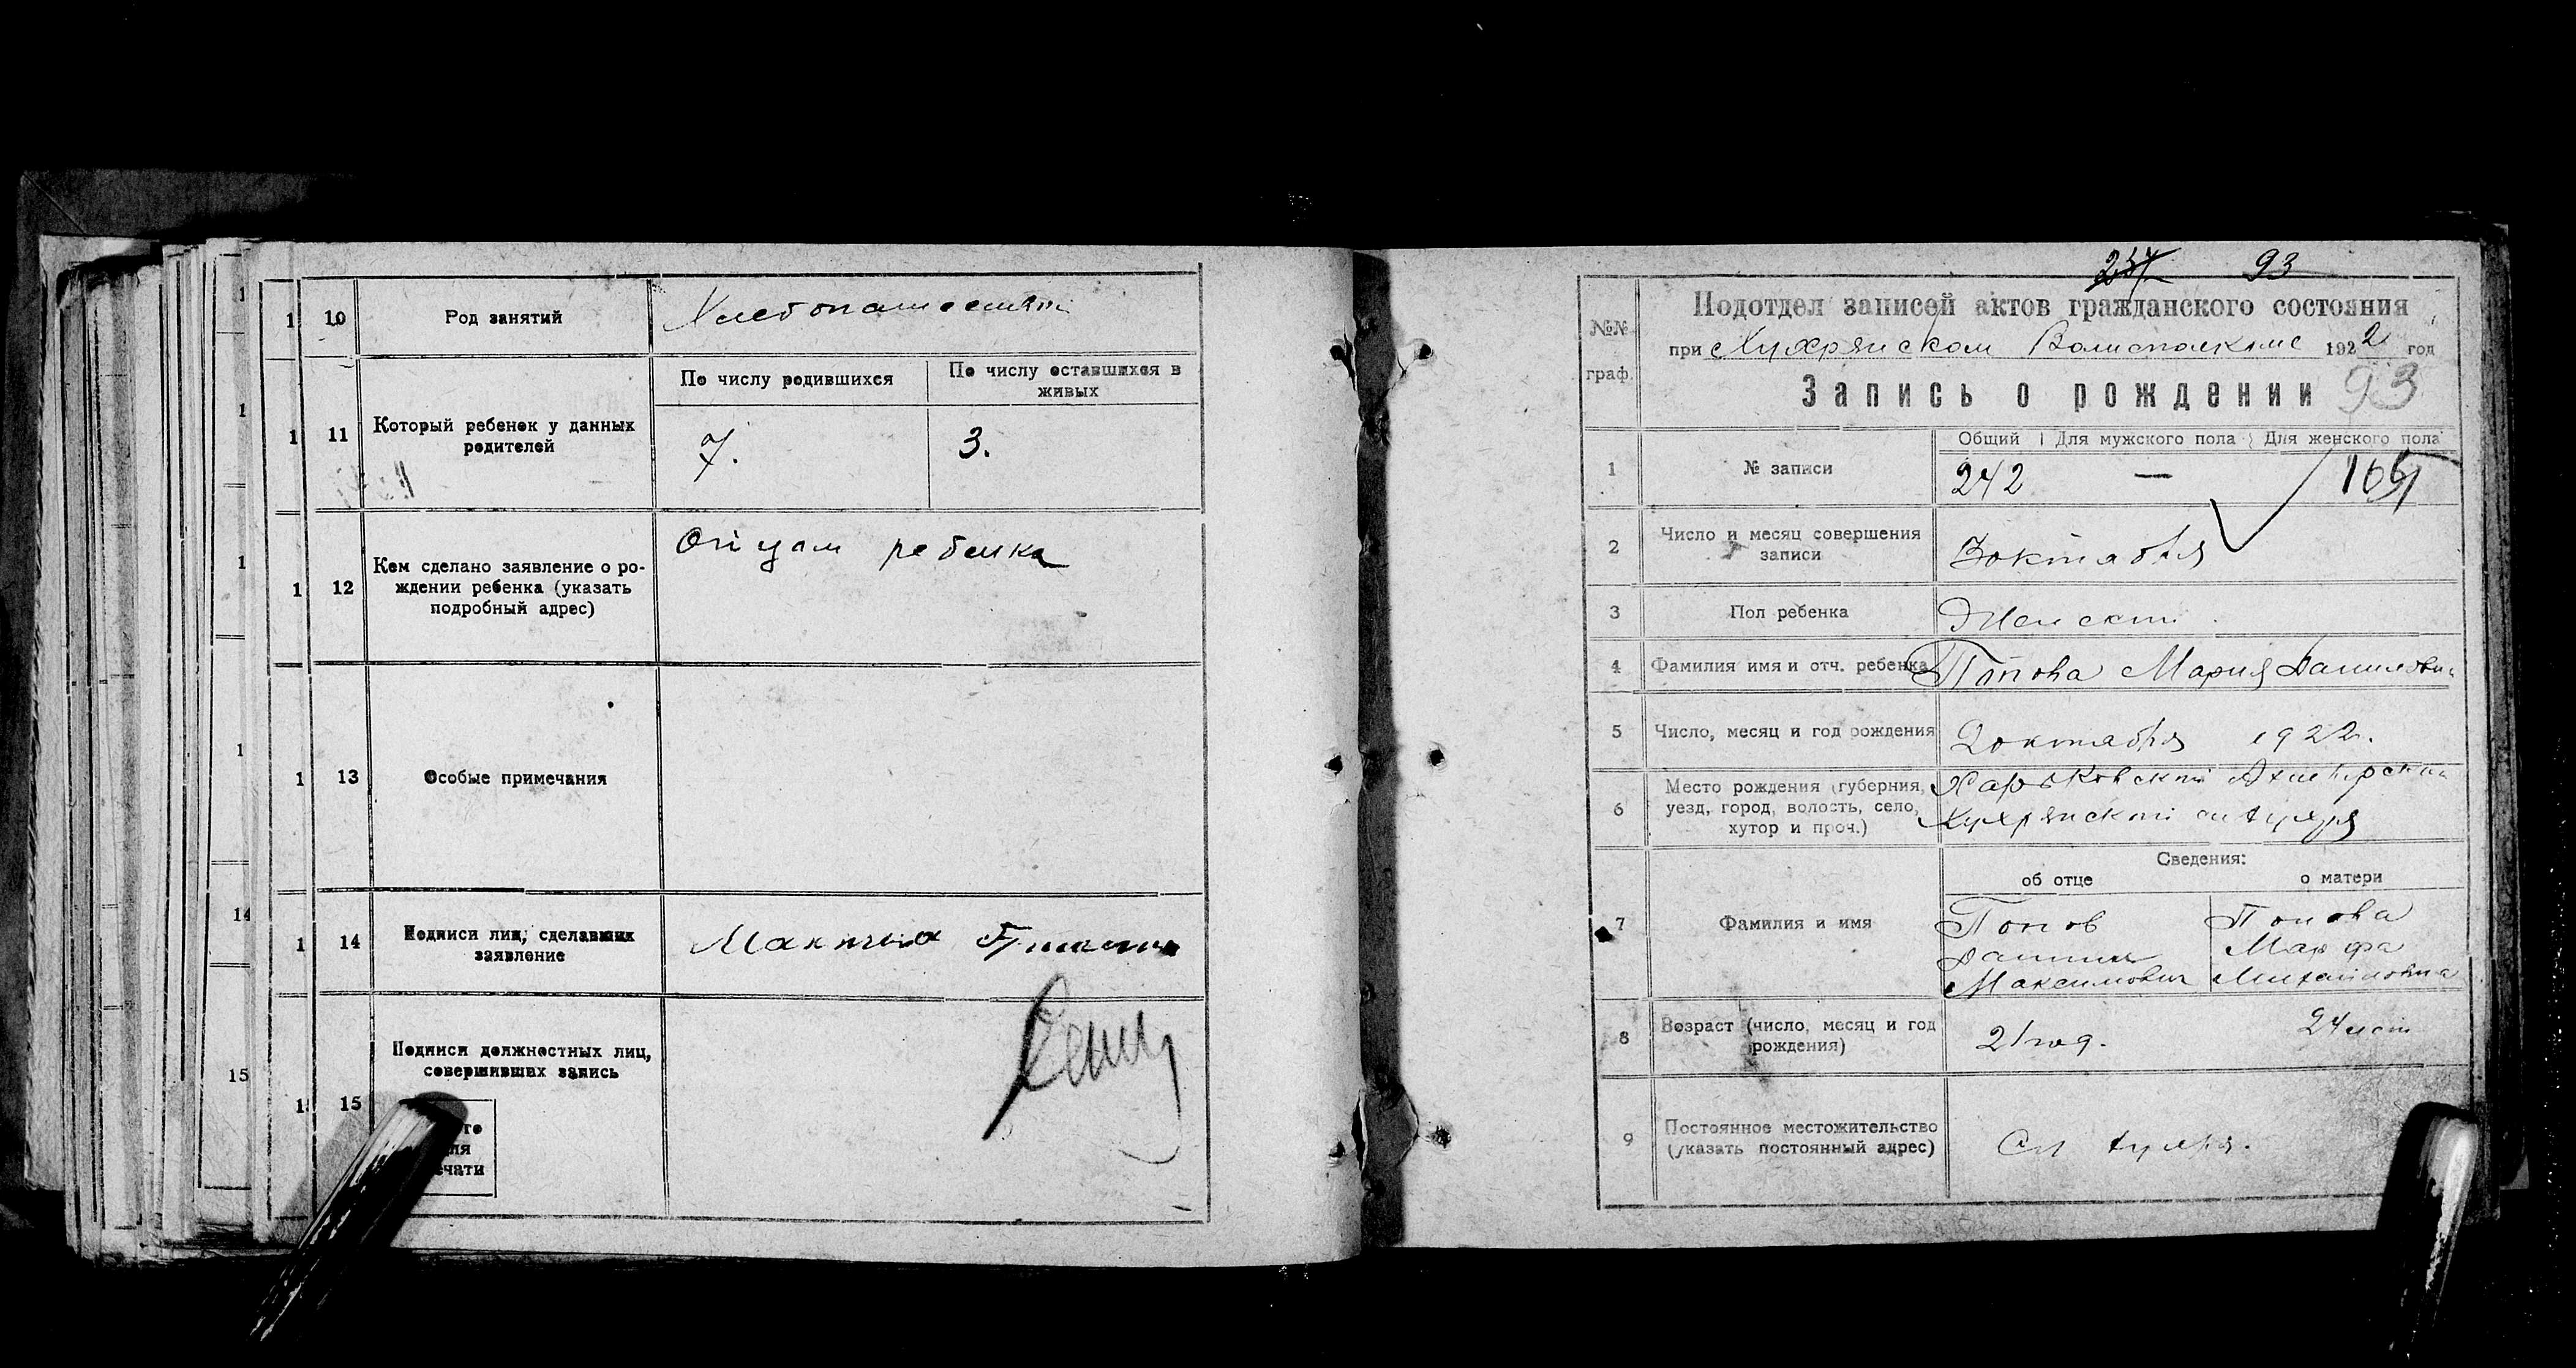 10
Род занятий
Хлебопашество
11
Который ребенок у данных
родителей
По числу родившихся
По числу оставшихся в
живых
7.
3.
12
Кем сделано заявление о ро-
ждении ребенка (указать
подробный адрес)
Отцом ребенка
13
Особые примечания
14
Подписи лиц, сделавших
заявление
15
Подписи должностных лиц,
совершивших запись
14
15
237
93
№№
граф.
Подотдел записей актов гражданского состояния
при Кухрянском Волисполкоме 1922 год
Запись о рождении 93
1
№ записи
Общий
Для мужского пола
Для женского пола
242
—
2
Число и месяц совершения
записи
3 октября
3
Пол ребенка
Женский
4
Фамилия имя и отч. ребенка
Попова Мария Данилови
5
Число, месяц и год рождения
2 октября 1922.
6
Место рождения (губерния,
уезд, город, волость, село,
хутор и проч.)
Харьковской
7
Фамилия и имя
Сведения:
об отце
о матери
Попов
Данил
Максимович
Попова
Марфа
Михайловна
8
Возраст (число, месяц и год
рождения)
21 год.
24 лет
9
Постоянное местожительство
(указать постоянный адрес)